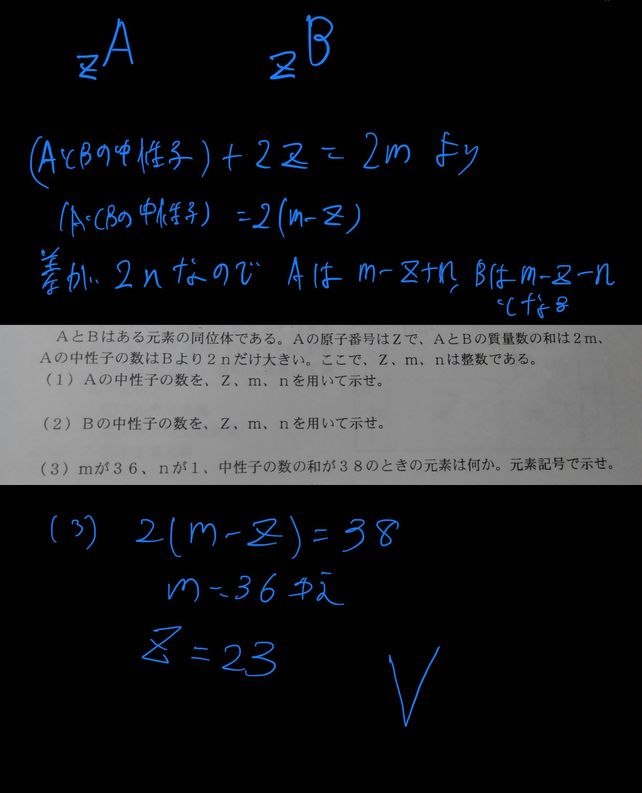 zA zB
(AとBの中性子)+2z=2m より
(AとBの中性子)=2(m-z)
差が2nなので Aは m-z+n, Bはm-z-n
となる
AとBはある元素の同位体である。Aの原子番号はZで、AとBの質量数の和は2m、
Aの中性子の数はBより2nだけ大きい。ここで、Z、m、nは整数である。
(1)Aの中性子の数を、Z、m、nを用いて示せ。
(2)Bの中性子の数を、Z、m、nを用いて示せ。
(3)mが36、nが1、中性子の数の和が38のときの元素は何か。元素記号で示せ。
(3) 2(m-z)=38
m=36
z=23
V